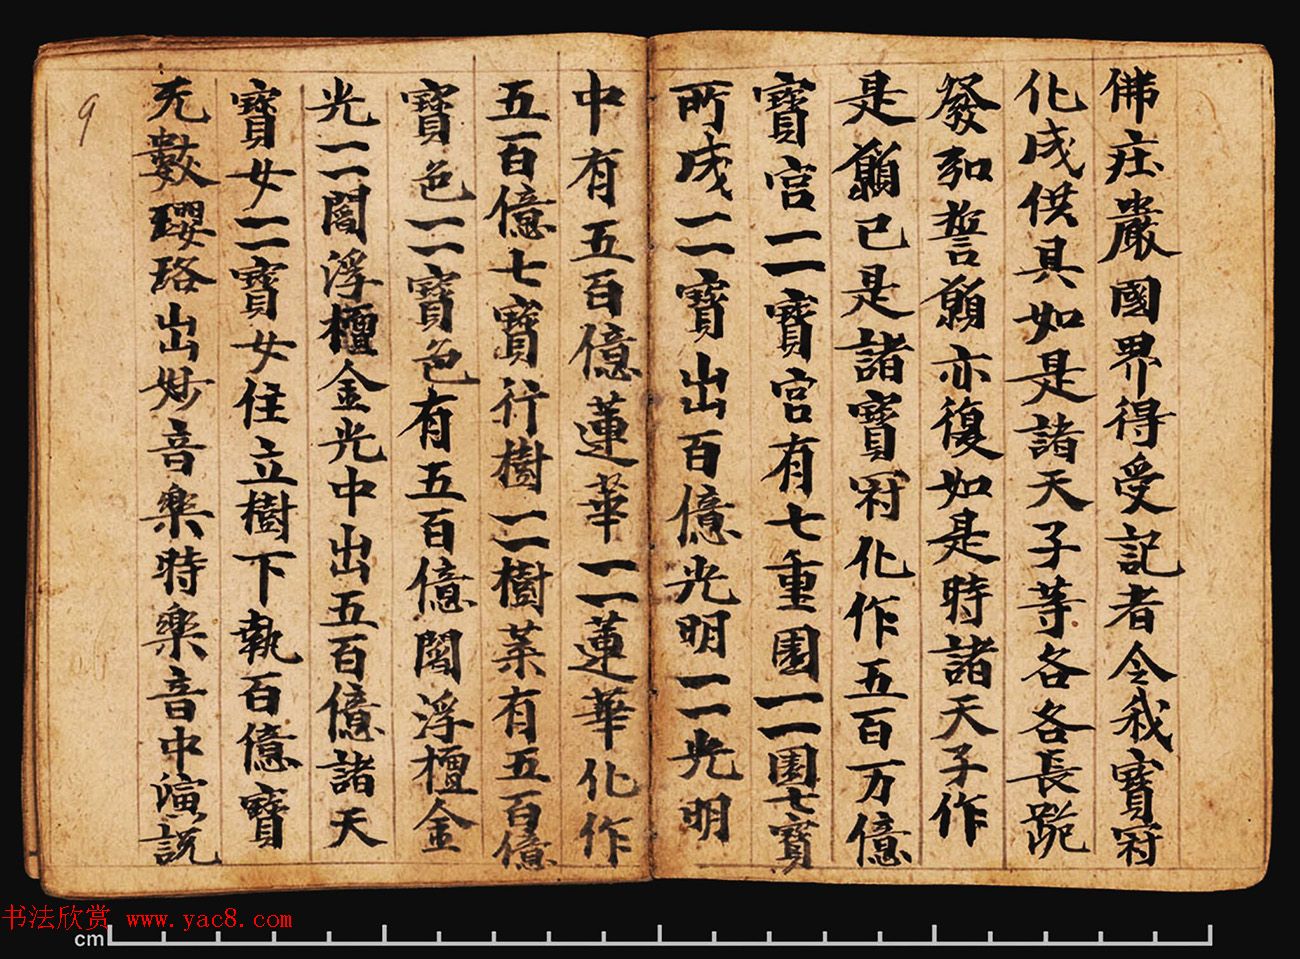 佛庄嚴國界得受記者令我寶冠
化成供具如是諸天子等各各長跪
發弘誓願亦復如是時諸天子作
是願已是諸寶冠化作五百万億
寶宮一一寶宮有七重園一一園七寶
所成一一寶出百億光明一一光明
中有五百億蓮華一一蓮華化作
五百億七寶行樹一一樹葉有五百億
寶色一一寶色有五百億閻浮檀金
光一一閻浮檀金光中出五百億諸天
寶女一一寶女住立樹下執百億寶
无數瓔珞出妙音樂時樂音中演說
9
书法欣赏 www.yac8.com
cm